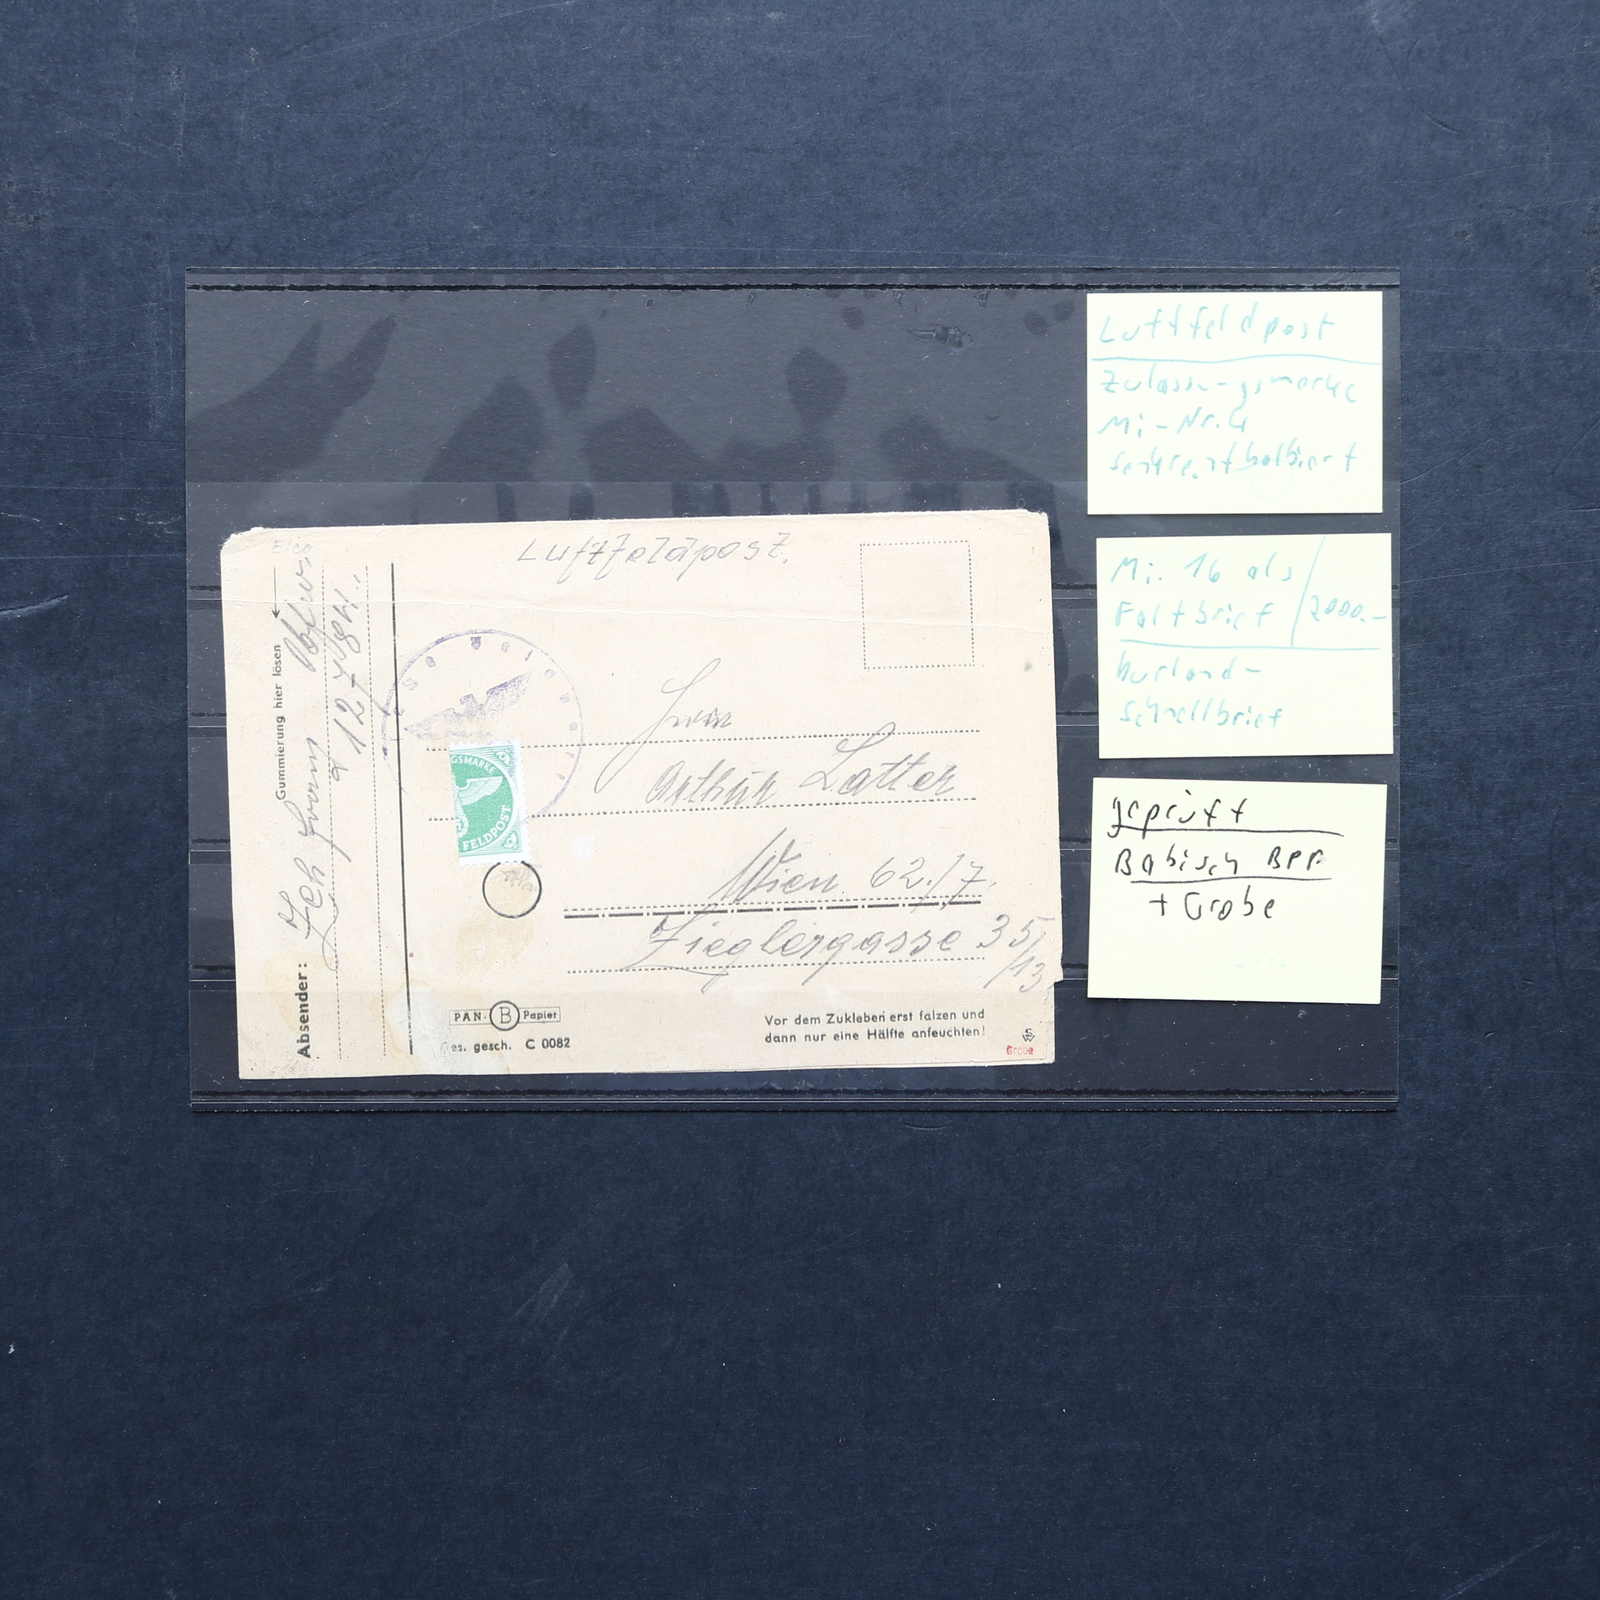 Luftfeldpost.
Gummierung hier lösen
Absender:
12784
GSMARKE
FELDPOST
Herrn
Arthur Latter
Wien 62./7.
Zieglergasse 35/
/13
PAN- B Papier
Ges. gesch. C 0082
Vor dem Zukleben erst falzen und
dann nur eine Hälfte anfeuchten!
Grobe
Luftfeldpost
Zulassungsmarke
Mi-Nr. 4
senkrecht halbiert
Mi. 16 als
Faltbrief / 2000.-
Kurland-
Schnellbrief
geprüft
Babisch BPP.
+ Grobe